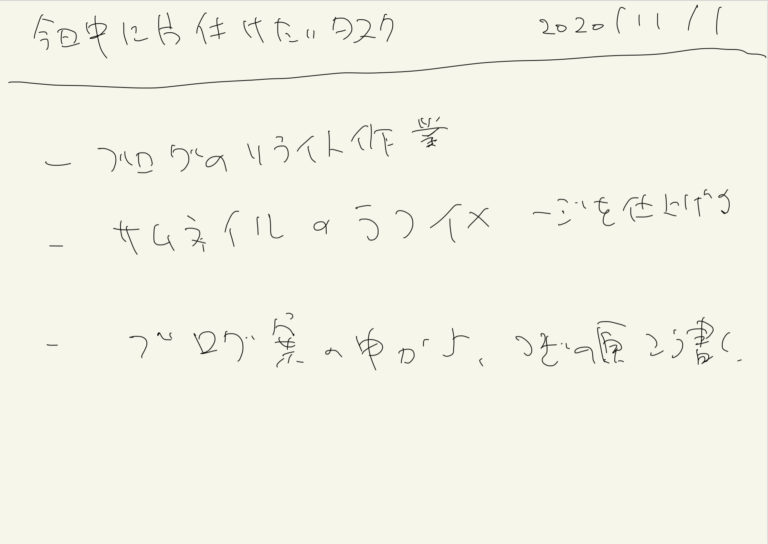 今日中に片付けたいタスク 2020/11/1
- ブログのリライト作業
- サムネイルのラフイメージを仕上げる
- ブログ案の中から、つぎの原こう書く